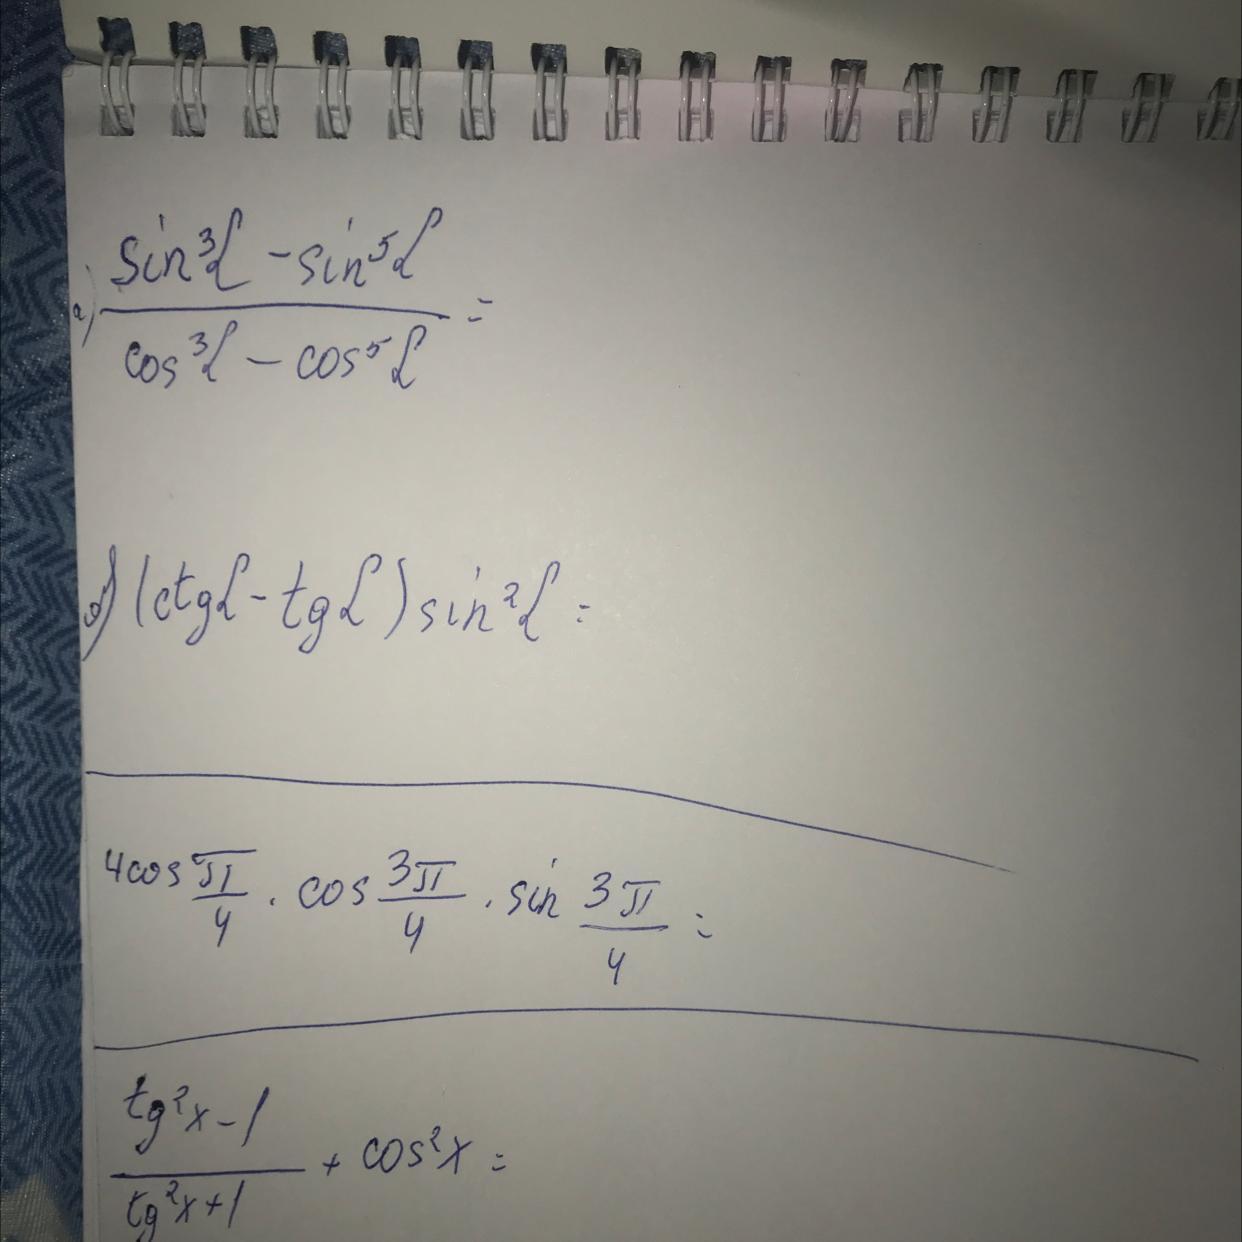 а) (sin³α - sin⁵α) / (cos³α - cos⁵α) =
б) (ctgα - tgα) sin²α =
4cos π/4 · cos 3π/4 · sin 3π/4 =
(tg²x - 1) / (tg²x + 1) + cos²x =